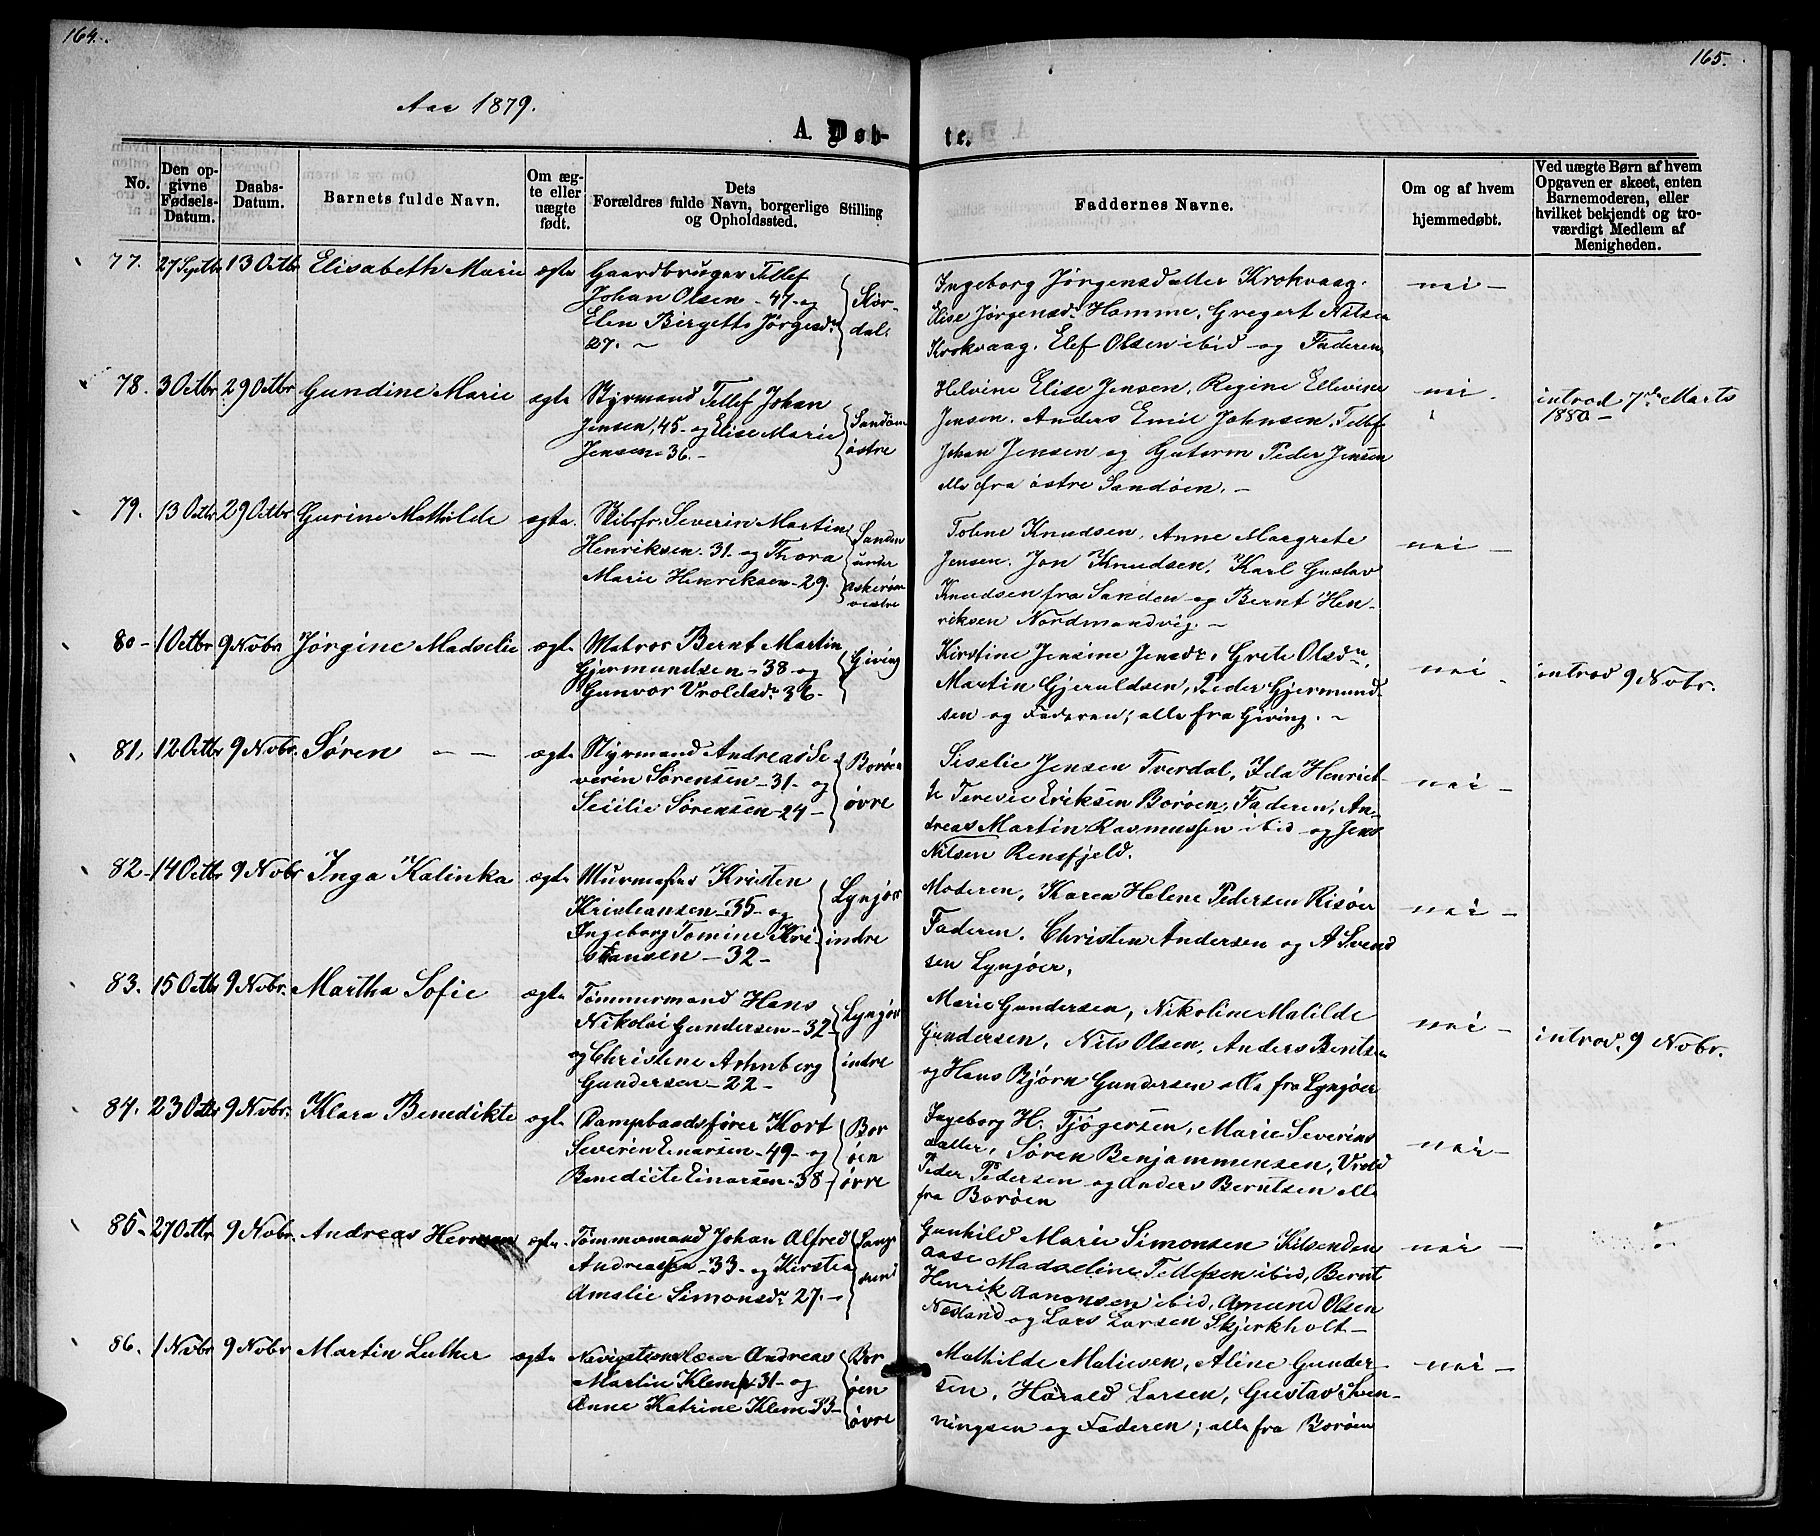 164.
165.
Aar 1879.
A. Døb-
te.
No.
Den op-
givne
Fødsels-
Datum.
Daabs-
Datum.
Barnets fulde Navn.
Om æg-
te eller
uægte
født.
Dets
Forældres fulde Navn, borgerlige Stilling
og Opholdssted.
Faddernes Navne.
Om og af hvem
hjemmedøbt.
Ved uægte Børn af hvem
Opgaven er skeet, enten
Barnemoderen, eller
hvilket bekjendt og tro-
værdigt Medlem af
Menigheden.
77. 27 Septbr 13 Octbr Elisabeth Marie ægte
Gaardbruger Tellef
Johan Olsen - 47 - og
Elen Birgette Jørgesdr
27. -
dal.
Ingeborg Jørgensdatter Krokvaag.
Elise Jørgensdr Homme, Gregert Nilsen
Krokvaag. Elef Olsen ibid og Faderen
nei -
78. 3 Octbr 29 Octbr Gundine Marie ægte
Styrmand Tellef Johan
Jensen, 45 - og Elise Marie
Jensen 36. -
Sandøen
østre
Helvine Elise Jensen, Regine Ellevine
Jensen. Anders Emil Johnsen. Tellef
Johan Jensen og Guttorm Peder Jensen
alle fra østre Sandøen. -
nei -
introd 7de Marts
1880 -
79. 13 Octbr 29 Octbr Gurine Mathilde ægte.
Skibsfr. Severin Martin
Henriksen - 31 - og Thora
Marie Henriksen - 29.
Sanden
under
Askerøen
vestre
Tobne Knudsen, Anne Margrete
Jensen. Jon Knudsen, Karl Gustav
Knudsen fra Sanden og Bernt Hen-
riksen Nordmandvig. -
nei -
80 - 1 Octbr 9 Novbr Jørgine Madselie ægte
Matros Bernt Martin
Gjermundsen - 38 - og
Gunvor Vroldsdr 36 -
Giving
Kirstine Jensine Jensdr, Grete Olsdr,
Martin Gjeruldsen, Peder Gjermund-
sen og Faderen; alle fra Giving. -
nei -
introd 9 Novbr.
81, 12 Octbr 9 Novbr. Søren - - ægte
Styrmand Andreas Se-
verin Sørensen - 31 - og
Secilie Sørensen - 24 -
Borøen
øvre
Siselie Jensen Tverdal, Ida Henriet-
te Teresie Eriksen Borøen, Faderen, An-
dreas Martin Rasmussen ibid - og Jens
Nilsen Rensfjeld.
nei -
82 - 14 Octbr 9 Novbr Inga Kalinka ægte
Murmester Kristen
Kristiansen - 35 - og
Ingeborg Tomine Kri-
stiansen - 32 -
Lyngør
indre
Moderen, Karen Helene Pedersen Risøer
Faderen. Christen Andersen og A Svend
sen Lyngøer,
nei -
83. 15 Octbr 9 Novbr. Martha Sofie ægte
Tømmermand Hans
Nikolai Gundersen - 32 -
og Christene
Gundersen - 22 -
Lyngør
indre
Marie Gundersen, Nikoline Matilde
Gundersen, Nils Olsen, Anders Bentsen
og Hans Bjørn Gundersen alle fra Lyngøer
nei -
introd. 9 Novbr.
84. 23 Octbr 9 Novbr. Klara Benedikte ægte
Dampbaadsfører Kort
Severin Einarsen - 49 - og
Benedicte Einarsen - 38 -
Bor
øen
øvre
Ingeborg H. Tjøgersen, Marie Severins
datter, Søren Benjammensen, Vrold
Peder Pedersen og Anders Berntsen alle
fra Borøen
nei -
85 - 27 Octbr 9 Novbr. Andreas Herman ægte.
Tømmermand Johan Alfred
Andreassen - 33 - og Kirstea
Amalie Simonsdr 27. -
Gunhild Marie Simonsen Kilsenden
Aase Madseline Tellefsen ibid, Bernt
Henrik Aanonsen ibid, Amund Olsen
Næsland og Lars Larsen Skjerkholt -
nei -
86. 1 Novbr 9 Novbr Martin Luther ægte
Navigationslærer Andreas
Martin Klem - 31 - og
Anne Katrine Klem 33 -
Bor
øen
øvre
Mathilde Maliesen, Aline Gunder-
sen, Harald Larsen, Gustav Sven-
ningsen og Faderen; alle fra Borøen
nei -